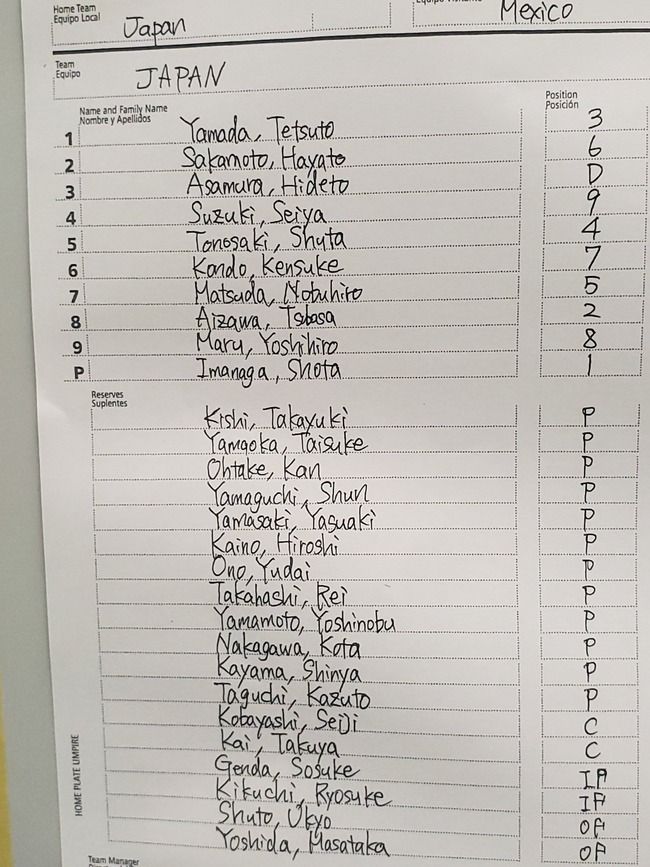 Home Team
Equipo Local Japan Mexico
Team
Equipo JAPAN
Name and Family Name
Nombre y Apellidos
Position
Posición
1 Yamada, Tetsuto 3
2 Sakamoto, Hayato 6
3 Asamura, Hideto D
4 Suzuki, Seiya 9
5 Tonosaki, Shuta 4
6 Kondo, Kensuke 7
7 Matsuda, Nobuhiro 5
8 Aizawa, Tsubasa 2
9 Maru, Yoshihiro 8
P Imanaga, Shota 1
Reserves
Suplentes
Kishi, Takayuki P
Yamaoka, Taisuke P
Ohtake, Kan P
Yamaguchi, Shun P
Yamasaki, Yasuaki P
Kaino, Hiroshi P
Ono, Yudai P
Takahashi, Rei P
Yamamoto, Yoshinobu P
Nakagawa, Kota P
Kayama, Shinya P
Taguchi, Kazuto P
Kobayashi, Seiji C
Kai, Takuya C
Genda, Sosuke IF
Kikuchi, Ryosuke IF
Shuto, Ukyo OF
Yoshida, Masataka OF
HOME PLATE UMPIRE
Team Manager